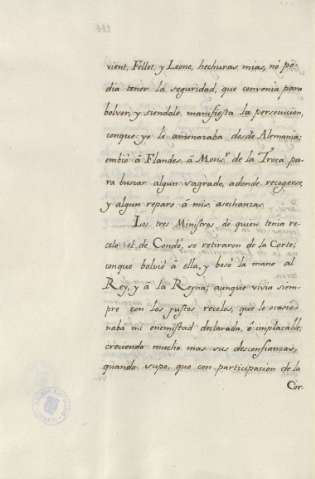 vient, Fellet, y Leone, hechuras mias, no po-
dia tener la seguridad, que convenia para
bolver, y siendole manifiesta la persecucion,
conque yo le amenazaba desde Alemania;
embiò à Flandes à Mons.r de la Troca pa-
ra buscar algun sagrado, adonde recogerse,
y algun reparo à mis asechanzas.
Los tres Ministros de quien tenia re-
celo el de Condè, se retiraron de la Corte;
conque bolviò à ella, y besò la mano al
Rey, y à la Reyna; aunque vivio siem-
pre con los justos recelos, que le ocasio-
naba mi enemistad declarada, è implacable,
creciendo mucho mas sus desconfianzas,
quando supo, que con participacion de la
Cor-